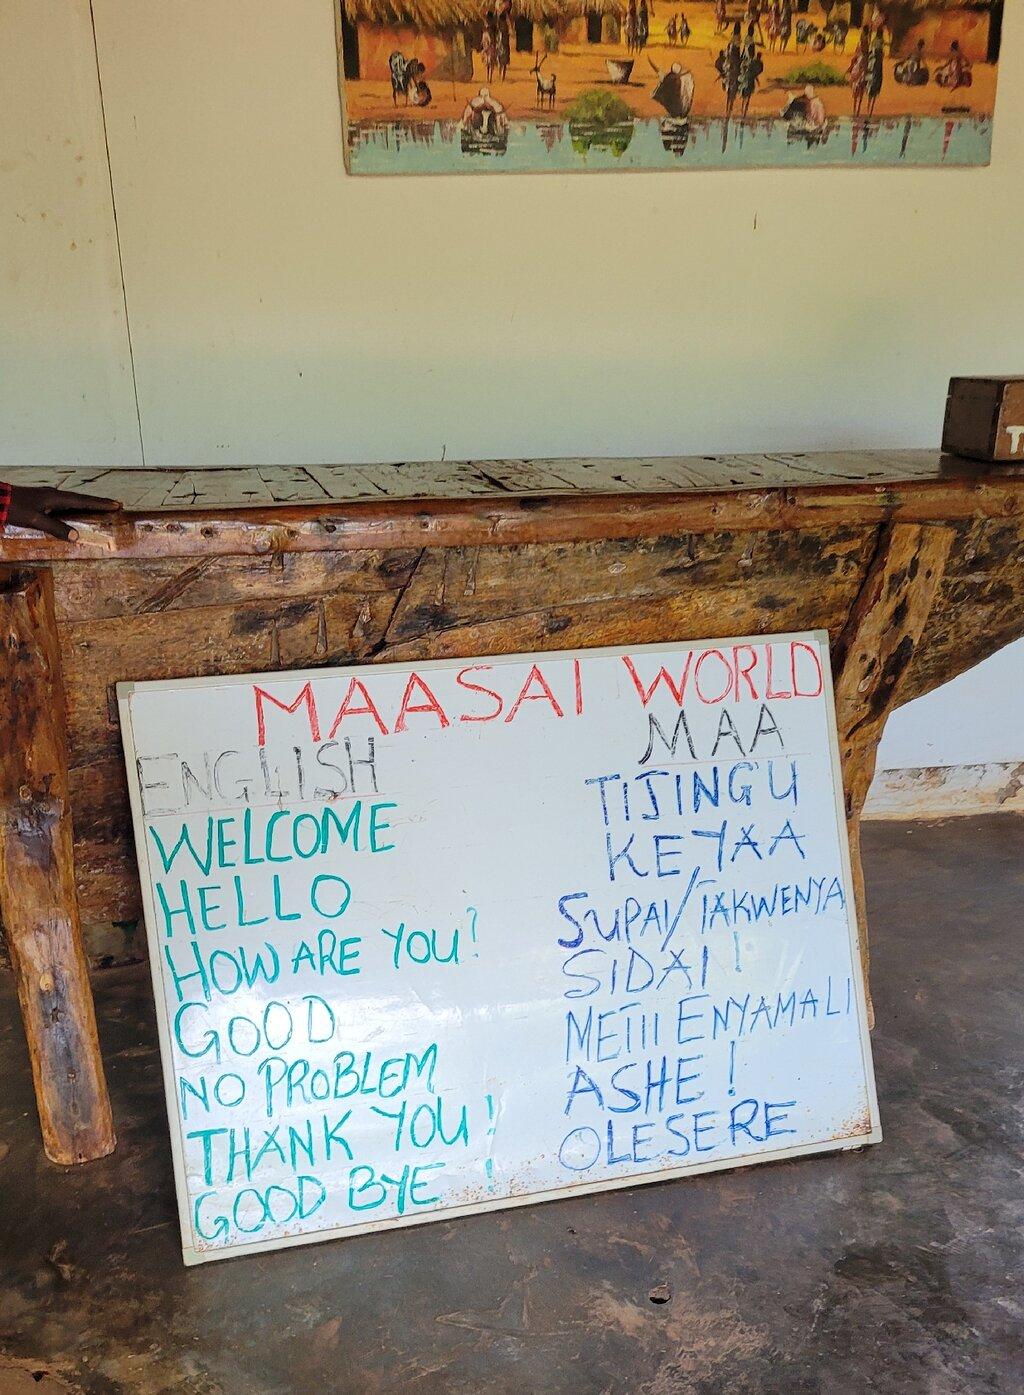 MAASAI WORLD
ENGLISH MAA
WELCOME TIJINGU
HELLO KEYAA
HOW ARE YOU? SUPAI/TAKWENYA
GOOD SIDAI !
NO PROBLEM METIII ENYAMALI
THANK YOU! ASHE !
GOOD BYE ! OLESERE
T